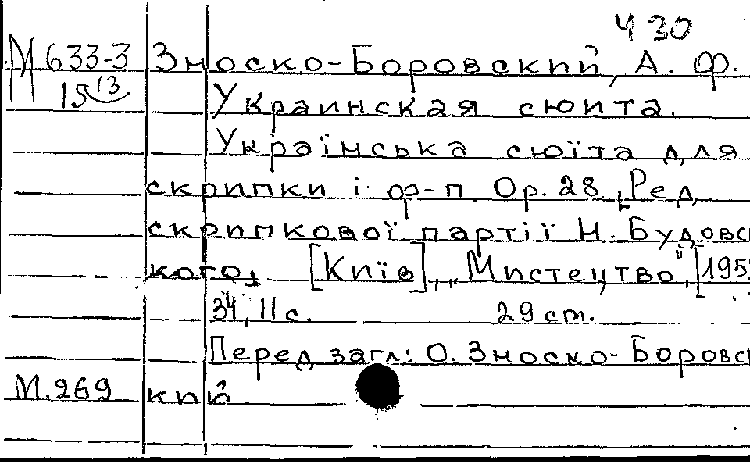 430
М 633-3 Зноско-Боровский, А. Ф.
15 13 Украинская сюита.
Українська сюїта для
скрипки і ф-п. Ор. 28. [Ред.
скрипкової партії Н. Будовсь
кого, [Київ], "Мистецтво", [195
34, 11 с. 29 ст.
Перед загл: О. Зноско-Боровсь
М.269 кий